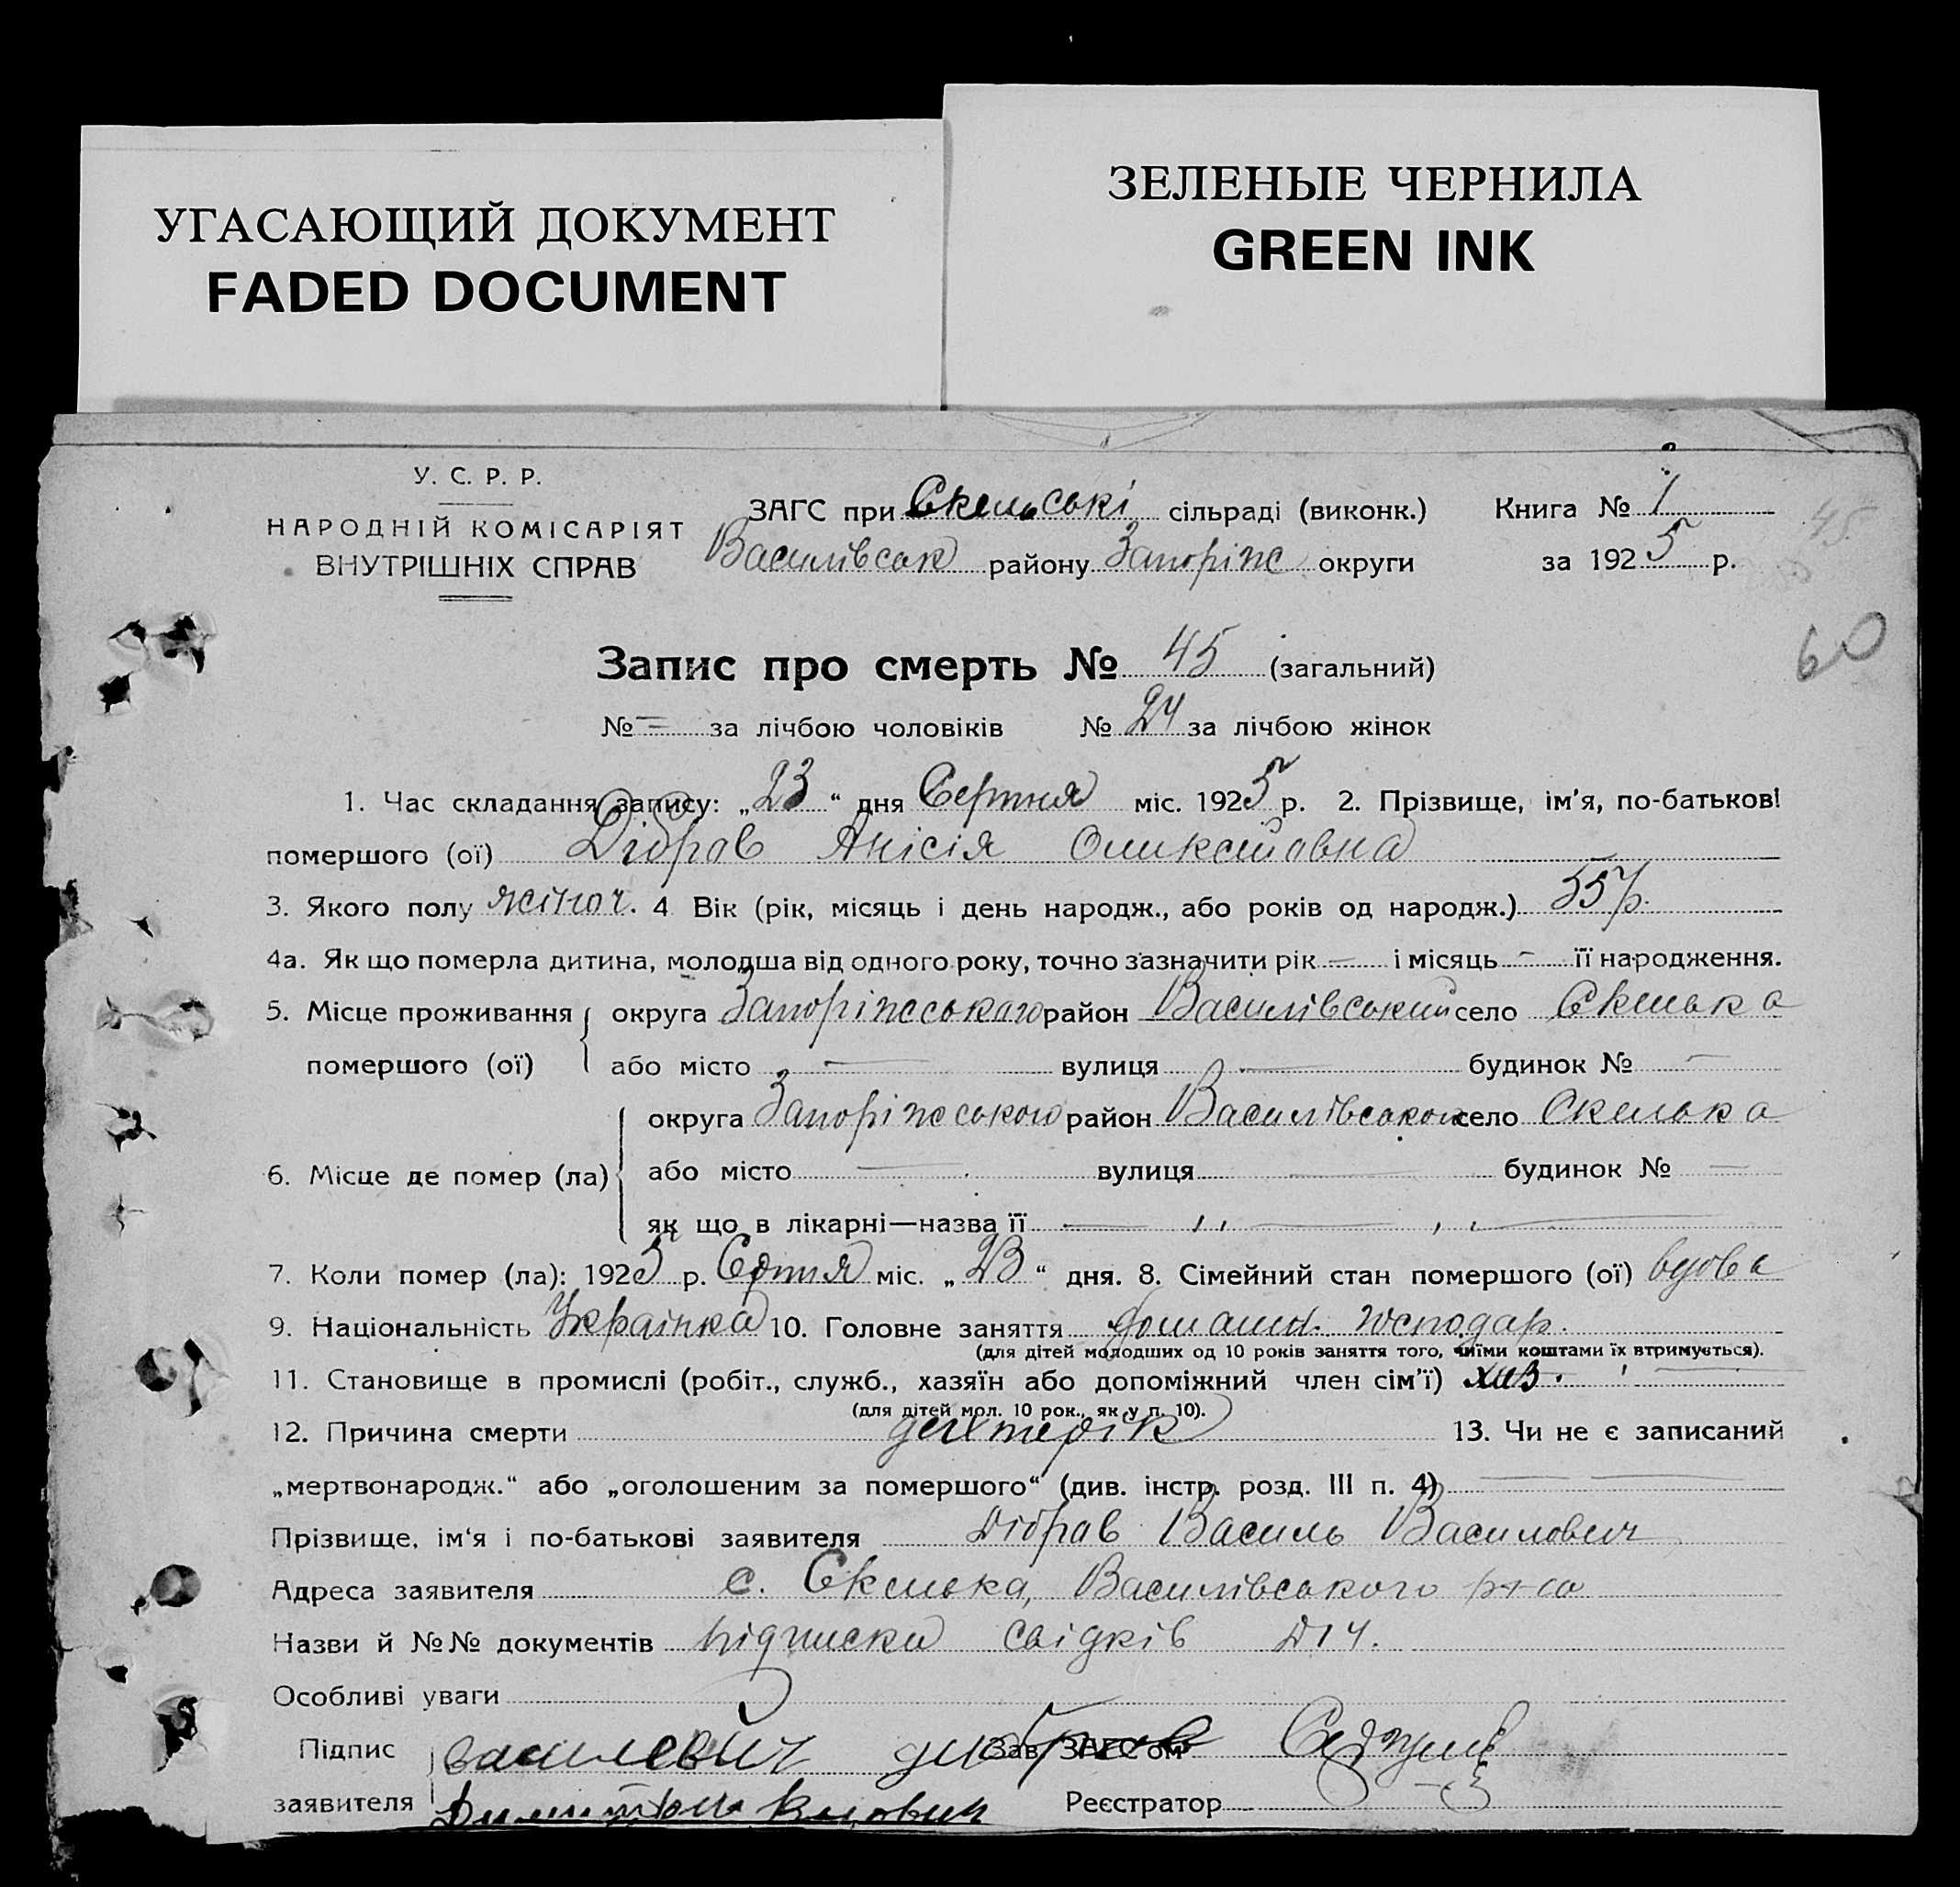 УГАСАЮЩИЙ ДОКУМЕНТ
FADED DOCUMENT
ЗЕЛЕНЫЕ ЧЕРНИЛА
GREEN INK
У. С. Р. Р.
НАРОДНІЙ КОМІСАРІЯТ
ВНУТРІШНІХ СПРАВ
ЗАГС при Скельські сільраді (виконк.)
Василівськ району Запоріж округи
Книга № 1
за 1925 р.
45
60
Запис про смерть № 45 (загальний)
№ = за лічбою чоловіків № 24 за лічбою жінок
1. Час складання запису: „23“ дня Серпня міс. 1925 р. 2. Прізвище, ім’я, по-батькові
помершого (ої) Дібров Анісія
3. Якого полу жіноч. 4 Вік (рік, місяць і день народж., або років од народж.) 55 р.
4а. Як що померла дитина, молодша від одного року, точно зазначити рік — і місяць — її народження.
5. Місце проживання округа Запоріжського район Василівський село Скелька
помершого (ої) або місто — вулиця — будинок № —
округа Запоріжського район Василівського село Скелька
6. Місце де помер (ла) або місто — вулиця — будинок № —
як що в лікарні—назва її —
7. Коли помер (ла): 1925 р. Серпня міс. „23“ дня. 8. Сімейний стан помершого (ої) вдова
9. Національність Українка 10. Головне заняття домашн. господар.
(для дітей молодших од 10 років заняття того, чиїми коштами їх втримується).
11. Становище в промислі (робіт., служб., хазяїн або допоміжний член сім’ї) хаз.
(для дітей мол. 10 рок., як у п. 10).
12. Причина смерти 13. Чи не є записаний
„мертвонародж.“ або „оголошеним за помершого“ (див. інстр. розд. III п. 4) —
Прізвище, ім‘я і по-батькові заявителя Дібров Василь Василович
Адреса заявителя с. Скелька, Василівського р-на
Назви й №№ документів підписки свідків
Особливі уваги
Підпис василевич Зав. ЗАГС‘ом
заявителя Реєстратор